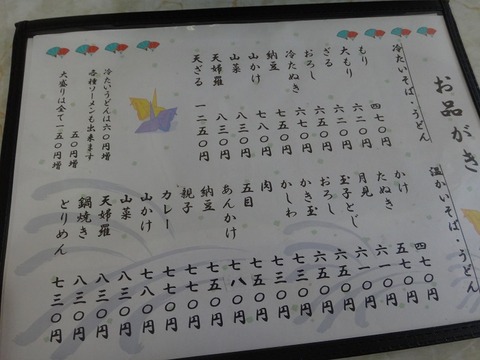 お品がき
冷たいそば・うどん
もり 四七〇円
大もり 六二〇円
ざる 六二〇円
おろし 六五〇円
冷たぬき 六五〇円
納豆 七五〇円
山かけ 七八〇円
山菜 八三〇円
天婦羅 八三〇円
天ざる 一二五〇円
冷たいうどんは六〇円増
各種ソーメンも出来ます
五〇円増
大盛りは全て一五〇円増
温かいそば・うどん
かけ 四七〇円
たぬき 五七〇円
月見 六一〇円
玉子とじ 六一〇円
おろし 六五〇円
かき玉 六五〇円
かしわ 七三〇円
肉 七三〇円
五目 七五〇円
あんかけ 七八〇円
納豆 七五〇円
親子 七七〇円
カレー 七七〇円
山かけ 七八〇円
山菜 八三〇円
天婦羅 八三〇円
鍋焼き 八三〇円
とりめん 七三〇円